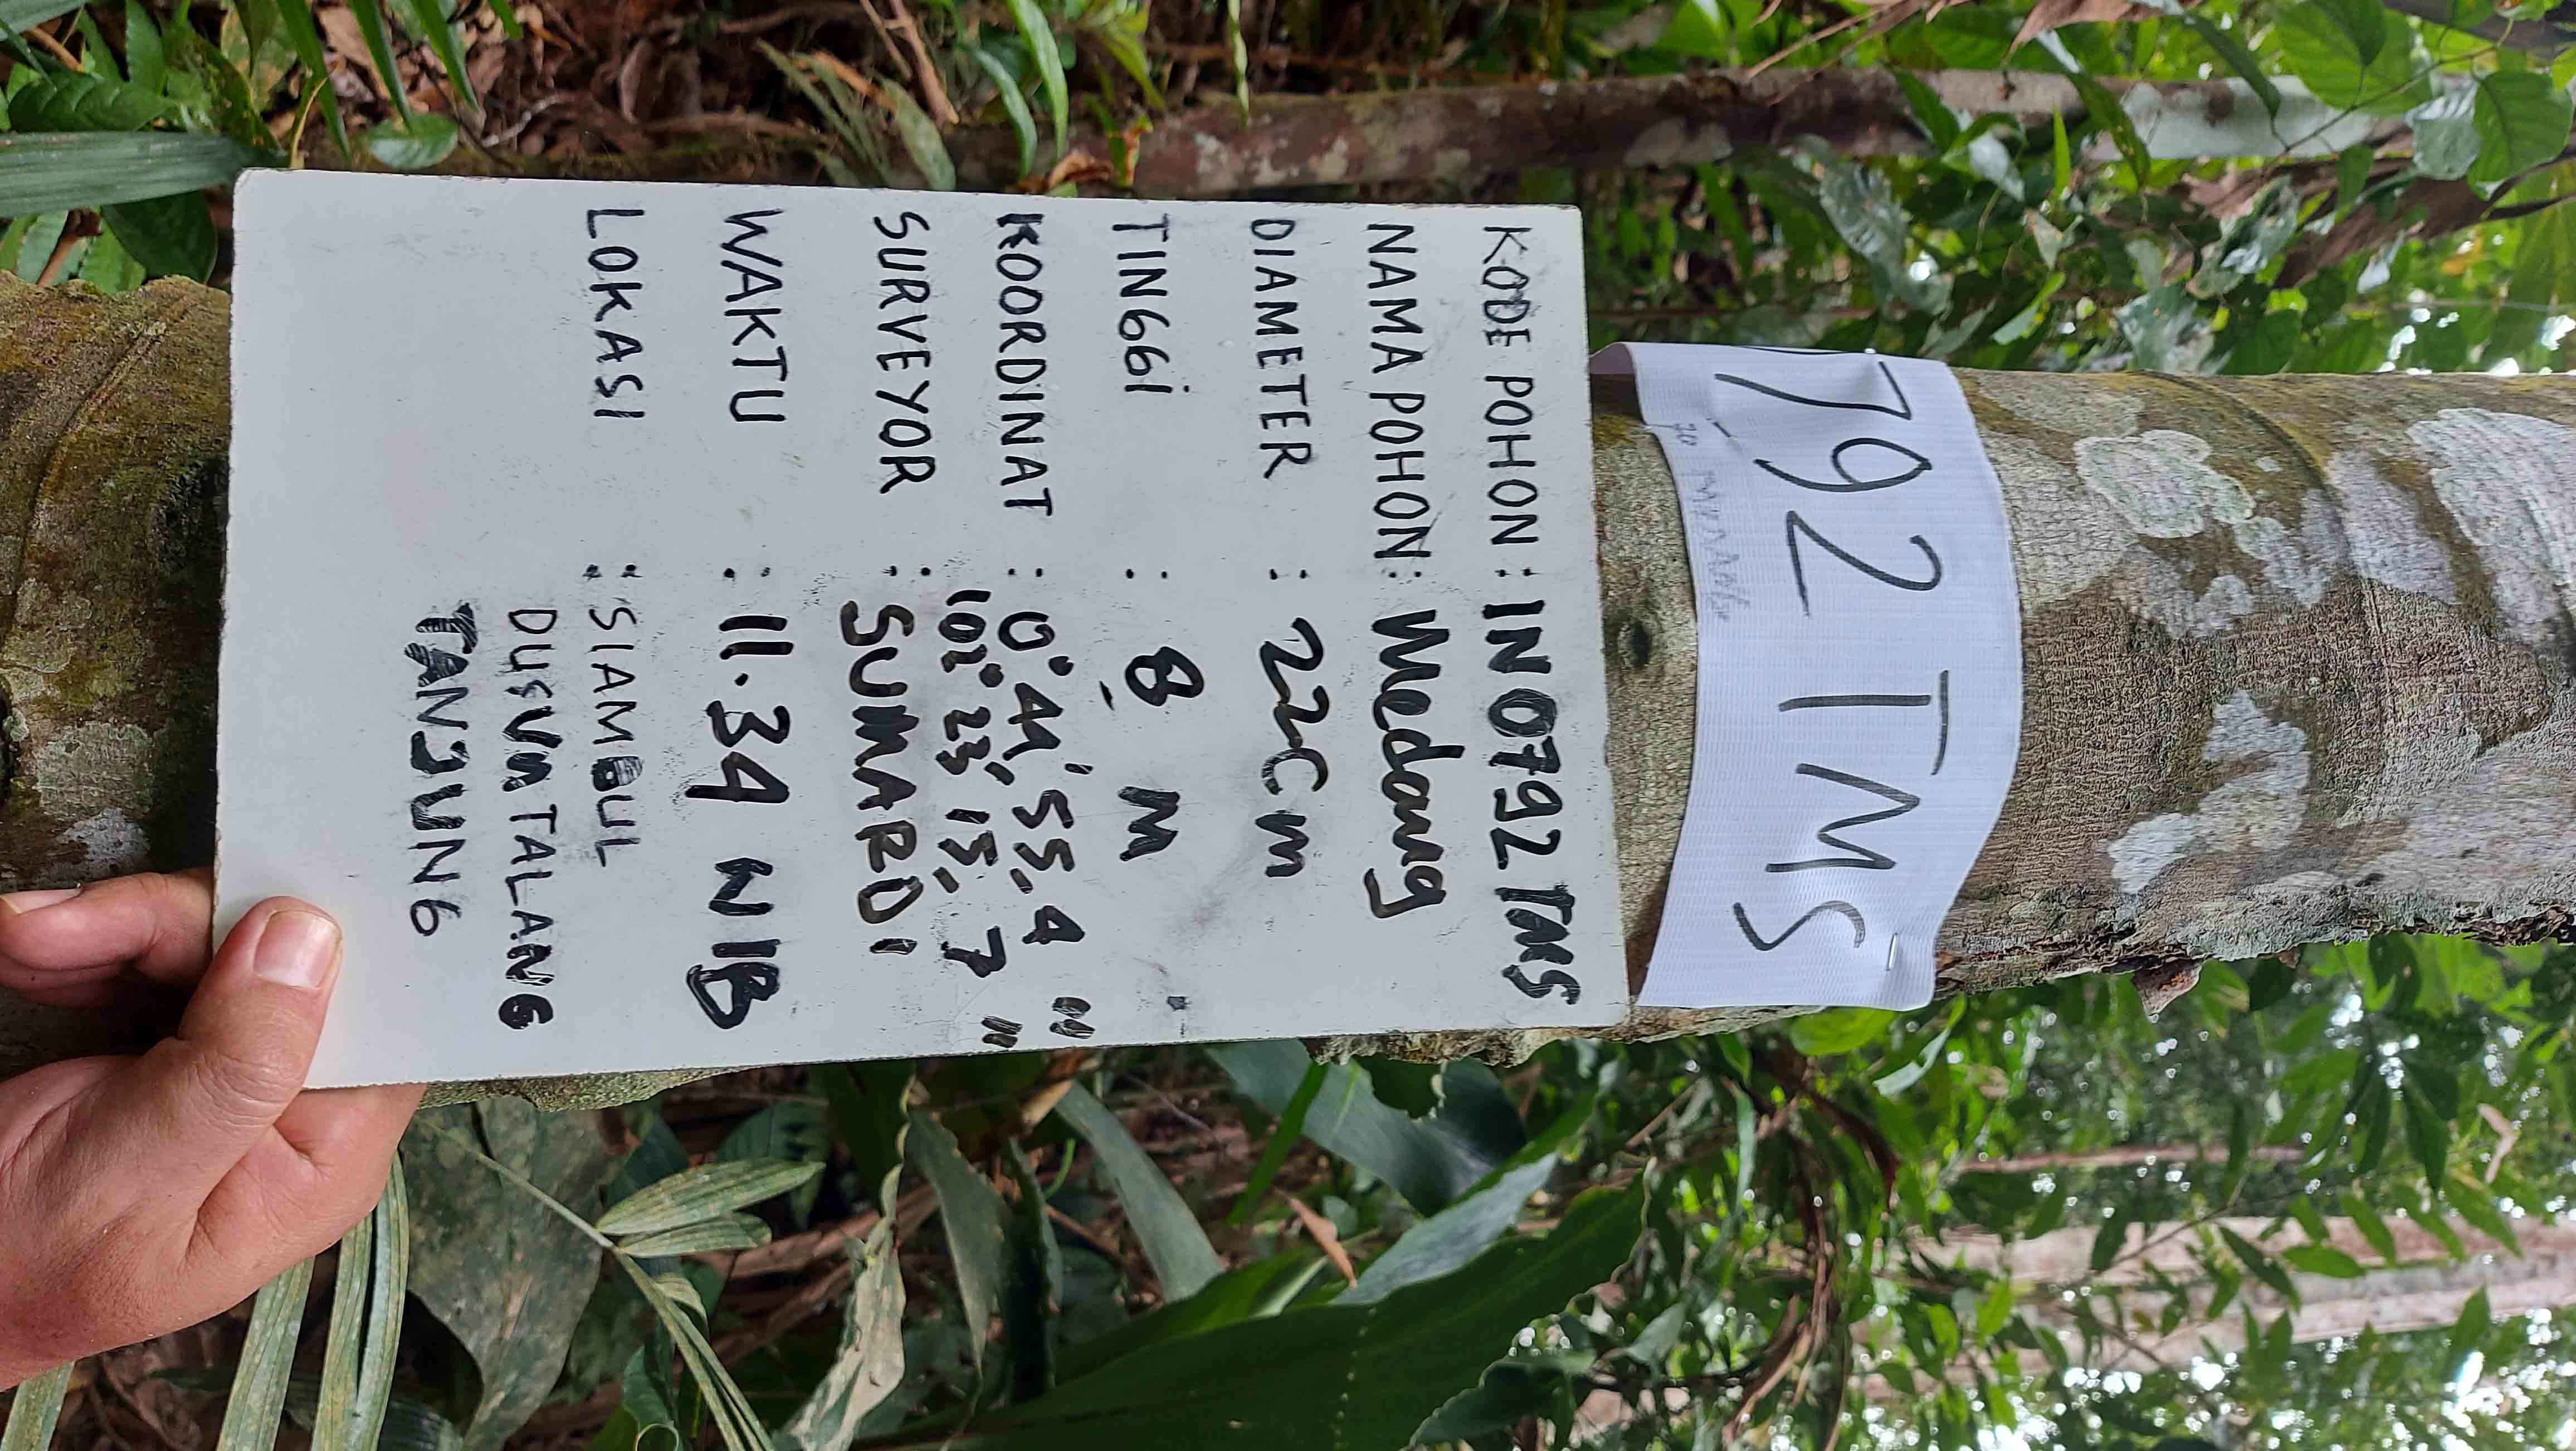 792 TMS
KODE POHON : IN 0792 TMS
NAMA POHON : Medang
DIAMETER : 22Cm
TINGGi : 8 M
KOORDINAT : 0° 44' 55. 4 "
102° 23' 15. 7 "
SURVEYOR : SUMARDI
WAKTU : 11.34 WIB
LOKASI : SIAMBUL
DUSUN TALANG
TANJUNG